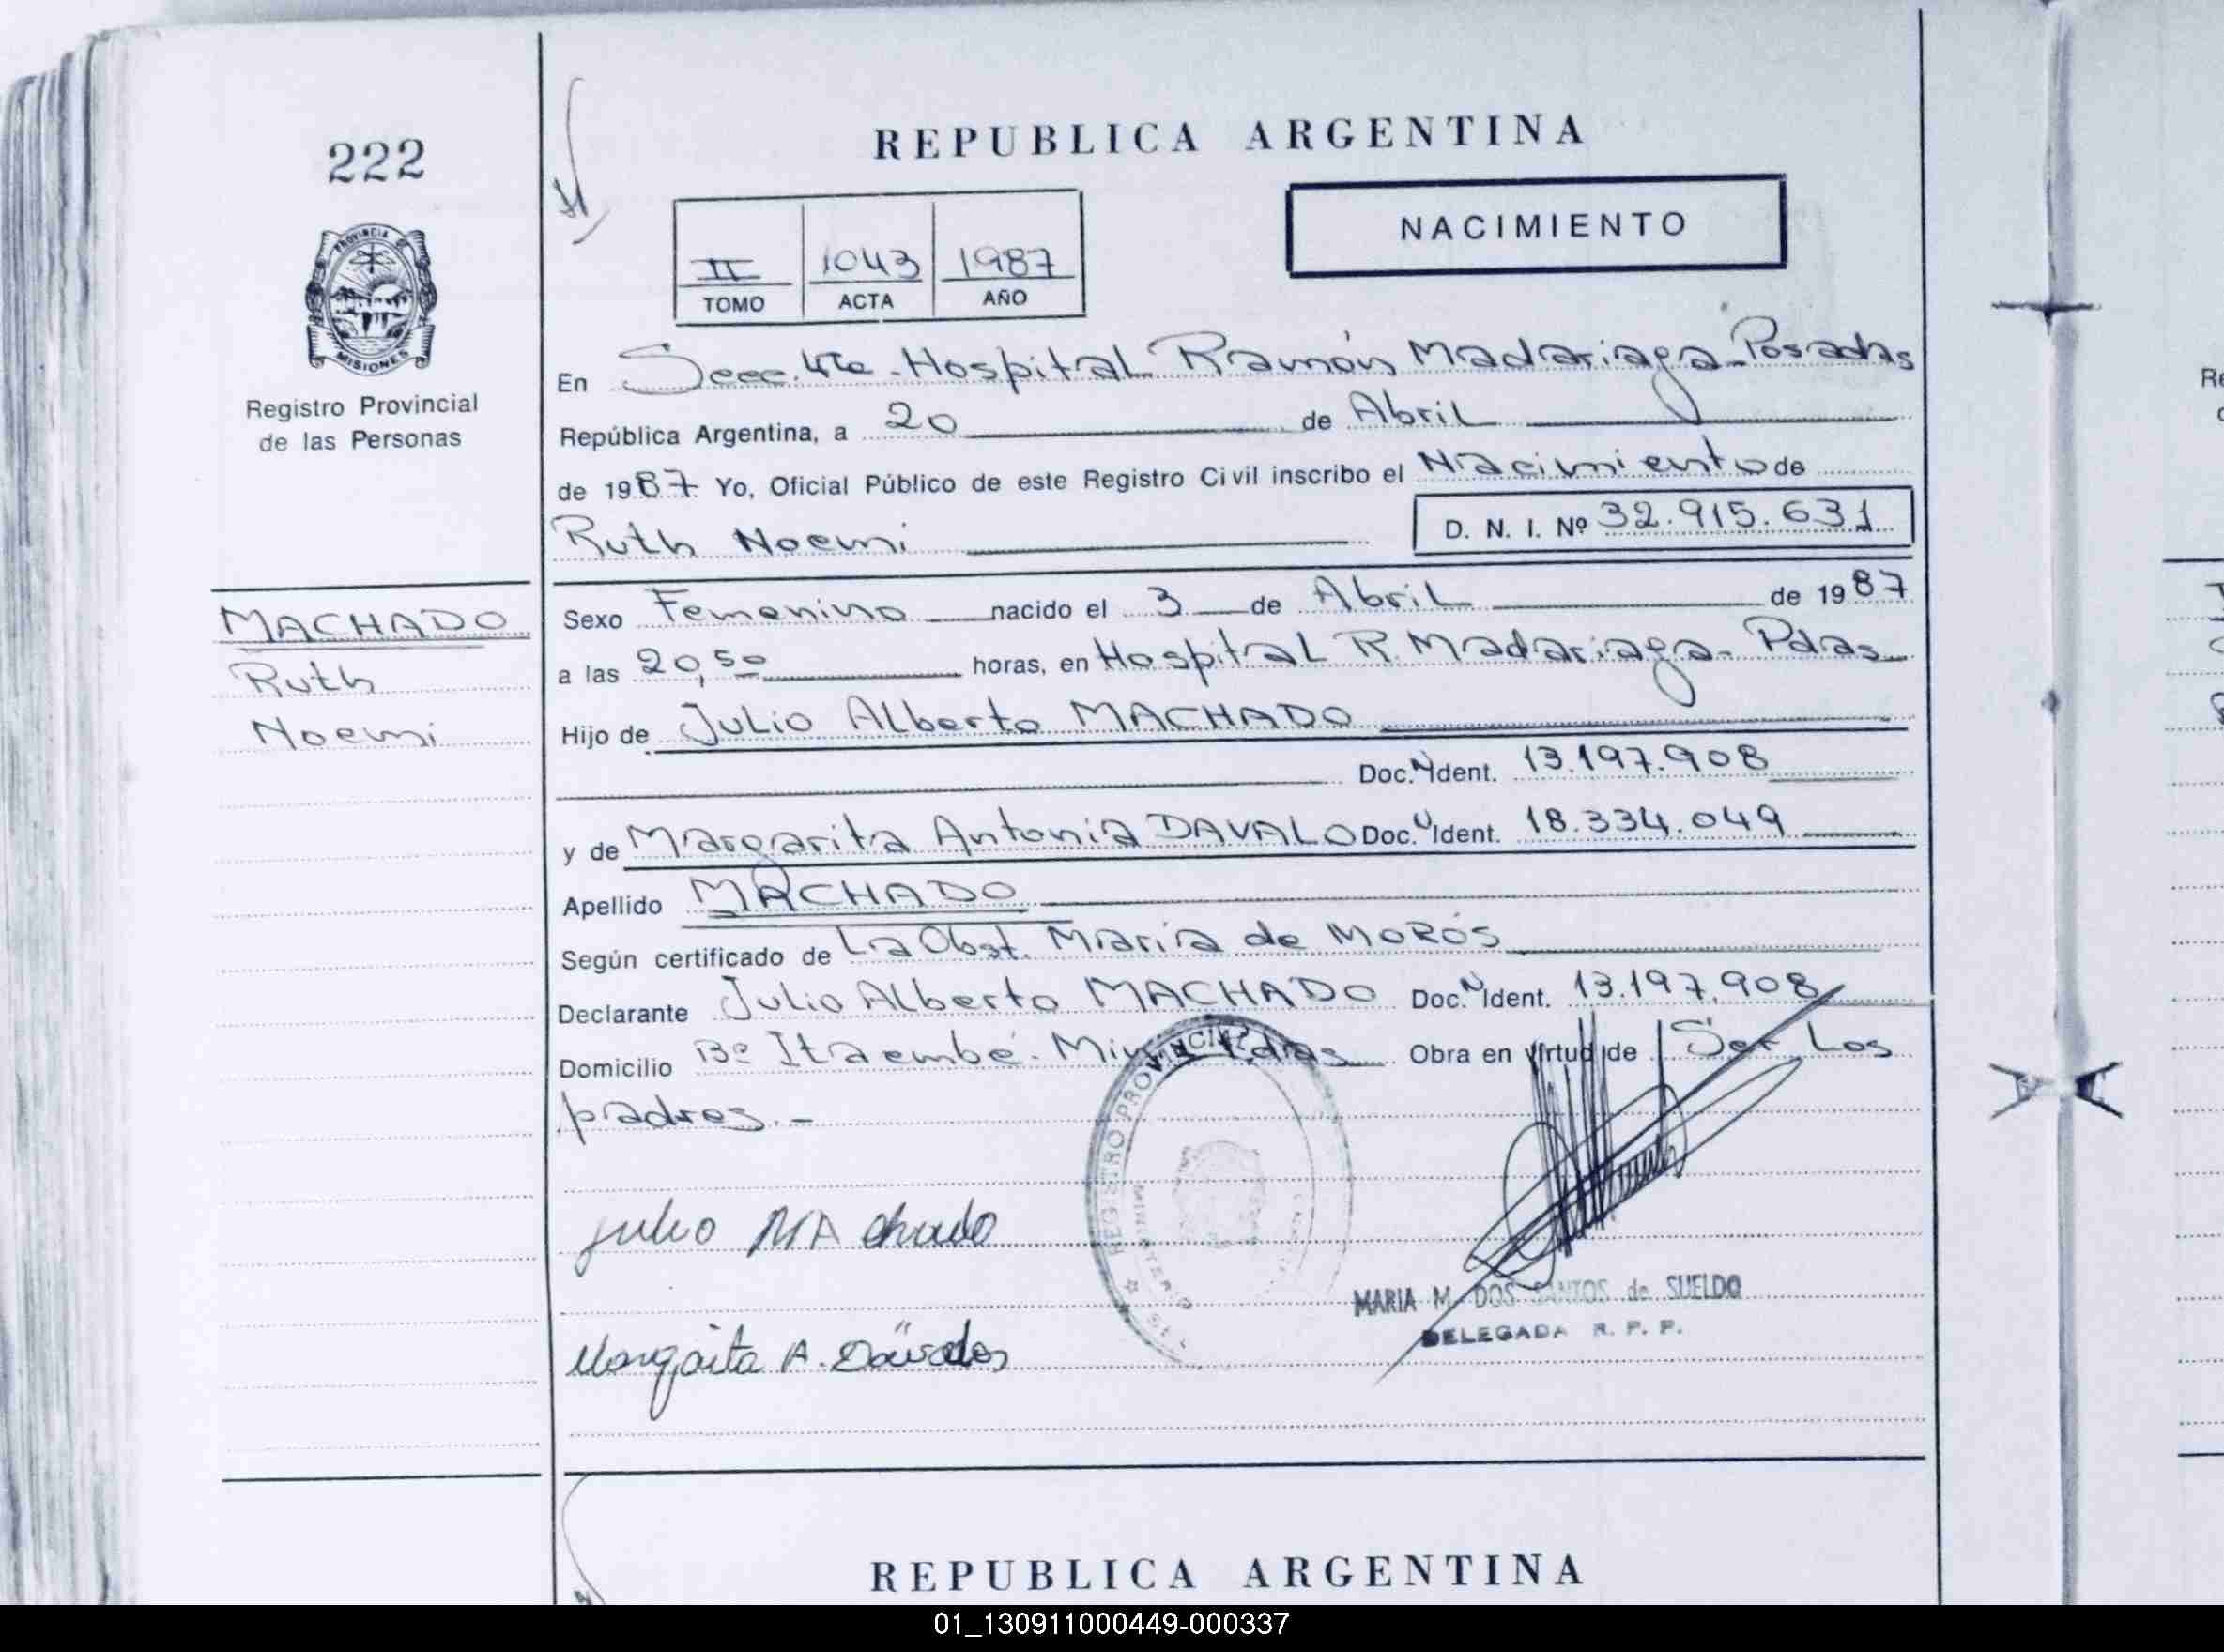 222
PROVINCIA DE
MISIONES
Registro Provincial
de las Personas
MACHADO
Ruth
Noemi
REPUBLICA ARGENTINA
NACIMIENTO
II 1043 1987
TOMO ACTA AÑO
En Secc. 4ta - Hospital Ramón Madariaga - Posadas
República Argentina, a 20 de Abril
de 1987 Yo, Oficial Público de este Registro Civil inscribo el Nacimiento de
Ruth Noemi D. N. I. Nº 32.915.631
Sexo Femenino nacido el 3 de Abril de 1987
a las 20,50 horas, en Hospital R. Madariaga - Pdas
Hijo de Julio Alberto MACHADO
Doc. N Ident. 13.197.908
y de Margarita Antonia DAVALO Doc. N Ident. 18.334.049
Apellido MACHADO
Según certificado de La Obst. María de MORÓS
Declarante Julio Alberto MACHADO Doc. N Ident. 13.197.908
Domicilio Bº Itaembé - Miní Pdas Obra en virtud de Ser Los
padres.-
REGISTRO PROVINCIAL
Julio MAchado
MARIA M. DOS SANTOS de SUELDO
DELEGADA R. P. P.
Margarita A. Dávalos
REPUBLICA ARGENTINA
01_130911000449-000337